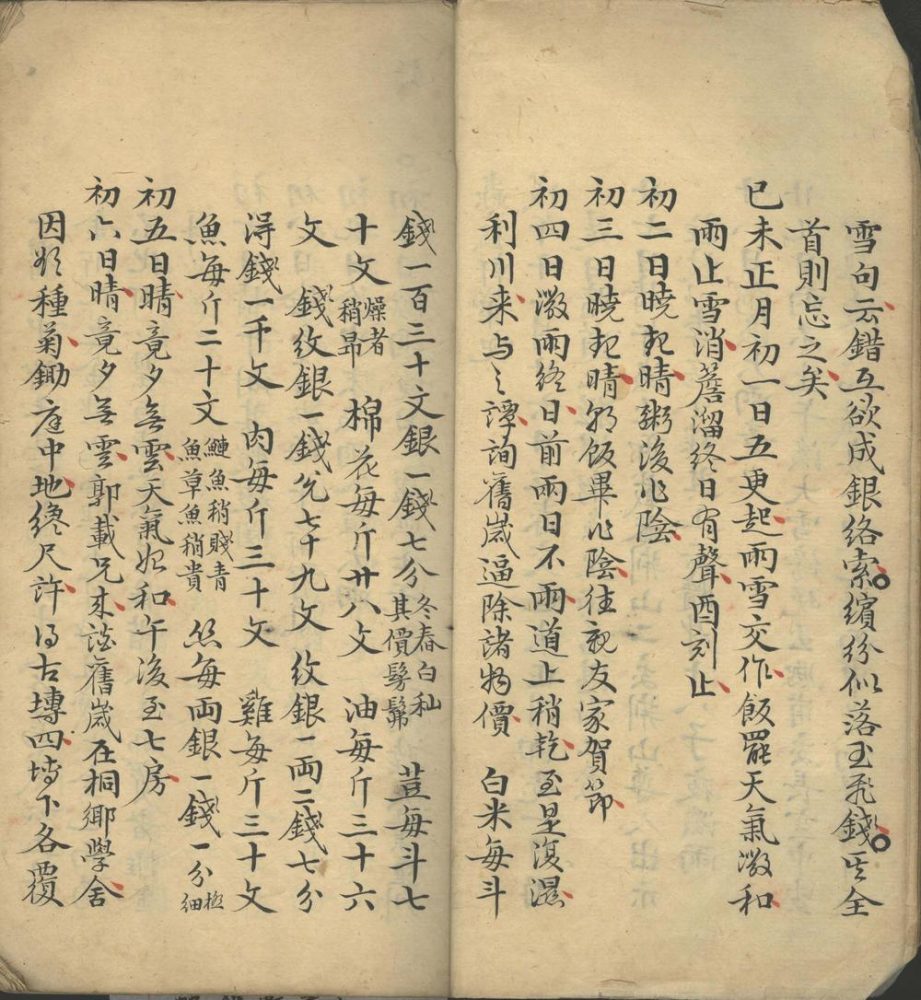 雪句云錯互欲成銀絡索繽紛似落玉飛錢其全
首則忘之矣
己未正月初一日五更起雨雪交作飯罷天氣澂和
雨止雪消簷溜終日有聲酉刻止
初二日曉起晴粥後作陰
初三日曉起晴飯畢作陰往親友家賀節
初四日澂雨終日前雨日不雨道上稍乾至是復濕
利川来与之譚詢舊歲逼除諸物價 白米每斗
錢一百三十文銀一錢七分冬舂白秈其價髣髴 荳每斗七
十文燥者稍昂 棉花每斤廿八文 油每斤三十六
文 錢紋銀一錢兌七十九文 紋銀一兩二錢七分
得錢一千文 肉每斤三十文 雞每斤三十文
魚每斤二十文鰱魚稍賤青魚草魚稍貴 絲每兩銀一錢一分極細
初五日晴竟夕無雲天氣妍和午後至七房
初六日晴竟夕無雲郭載兄来談舊歲在桐鄉學舍
因於種菊鋤庭中地纔尺許得古塼四塼下各覆